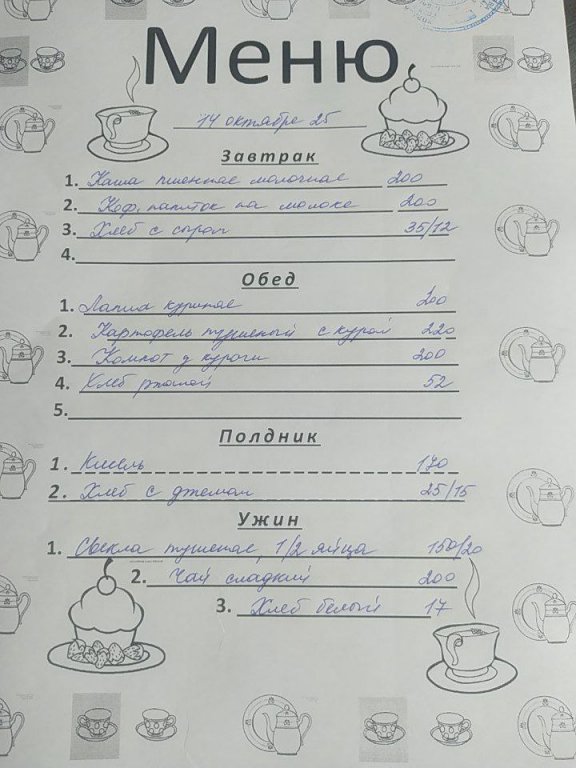 Меню
14 октября 25
Завтрак
1. Каша пшенная молочная 200
2. Коф. напиток на молоке 200
3. Хлеб с сыром 35/12
4.
Обед
1. Лапша куриная 200
2. Картофель тушеный с курой 220
3. Компот из кураги 200
4. Хлеб ржаной 52
5.
Полдник
1. Кисель 170
2. Хлеб с джемом 25/15
Ужин
1. Свекла тушеная, 1/2 яйца 150/20
2. Чай сладкий 200
3. Хлеб белый 17